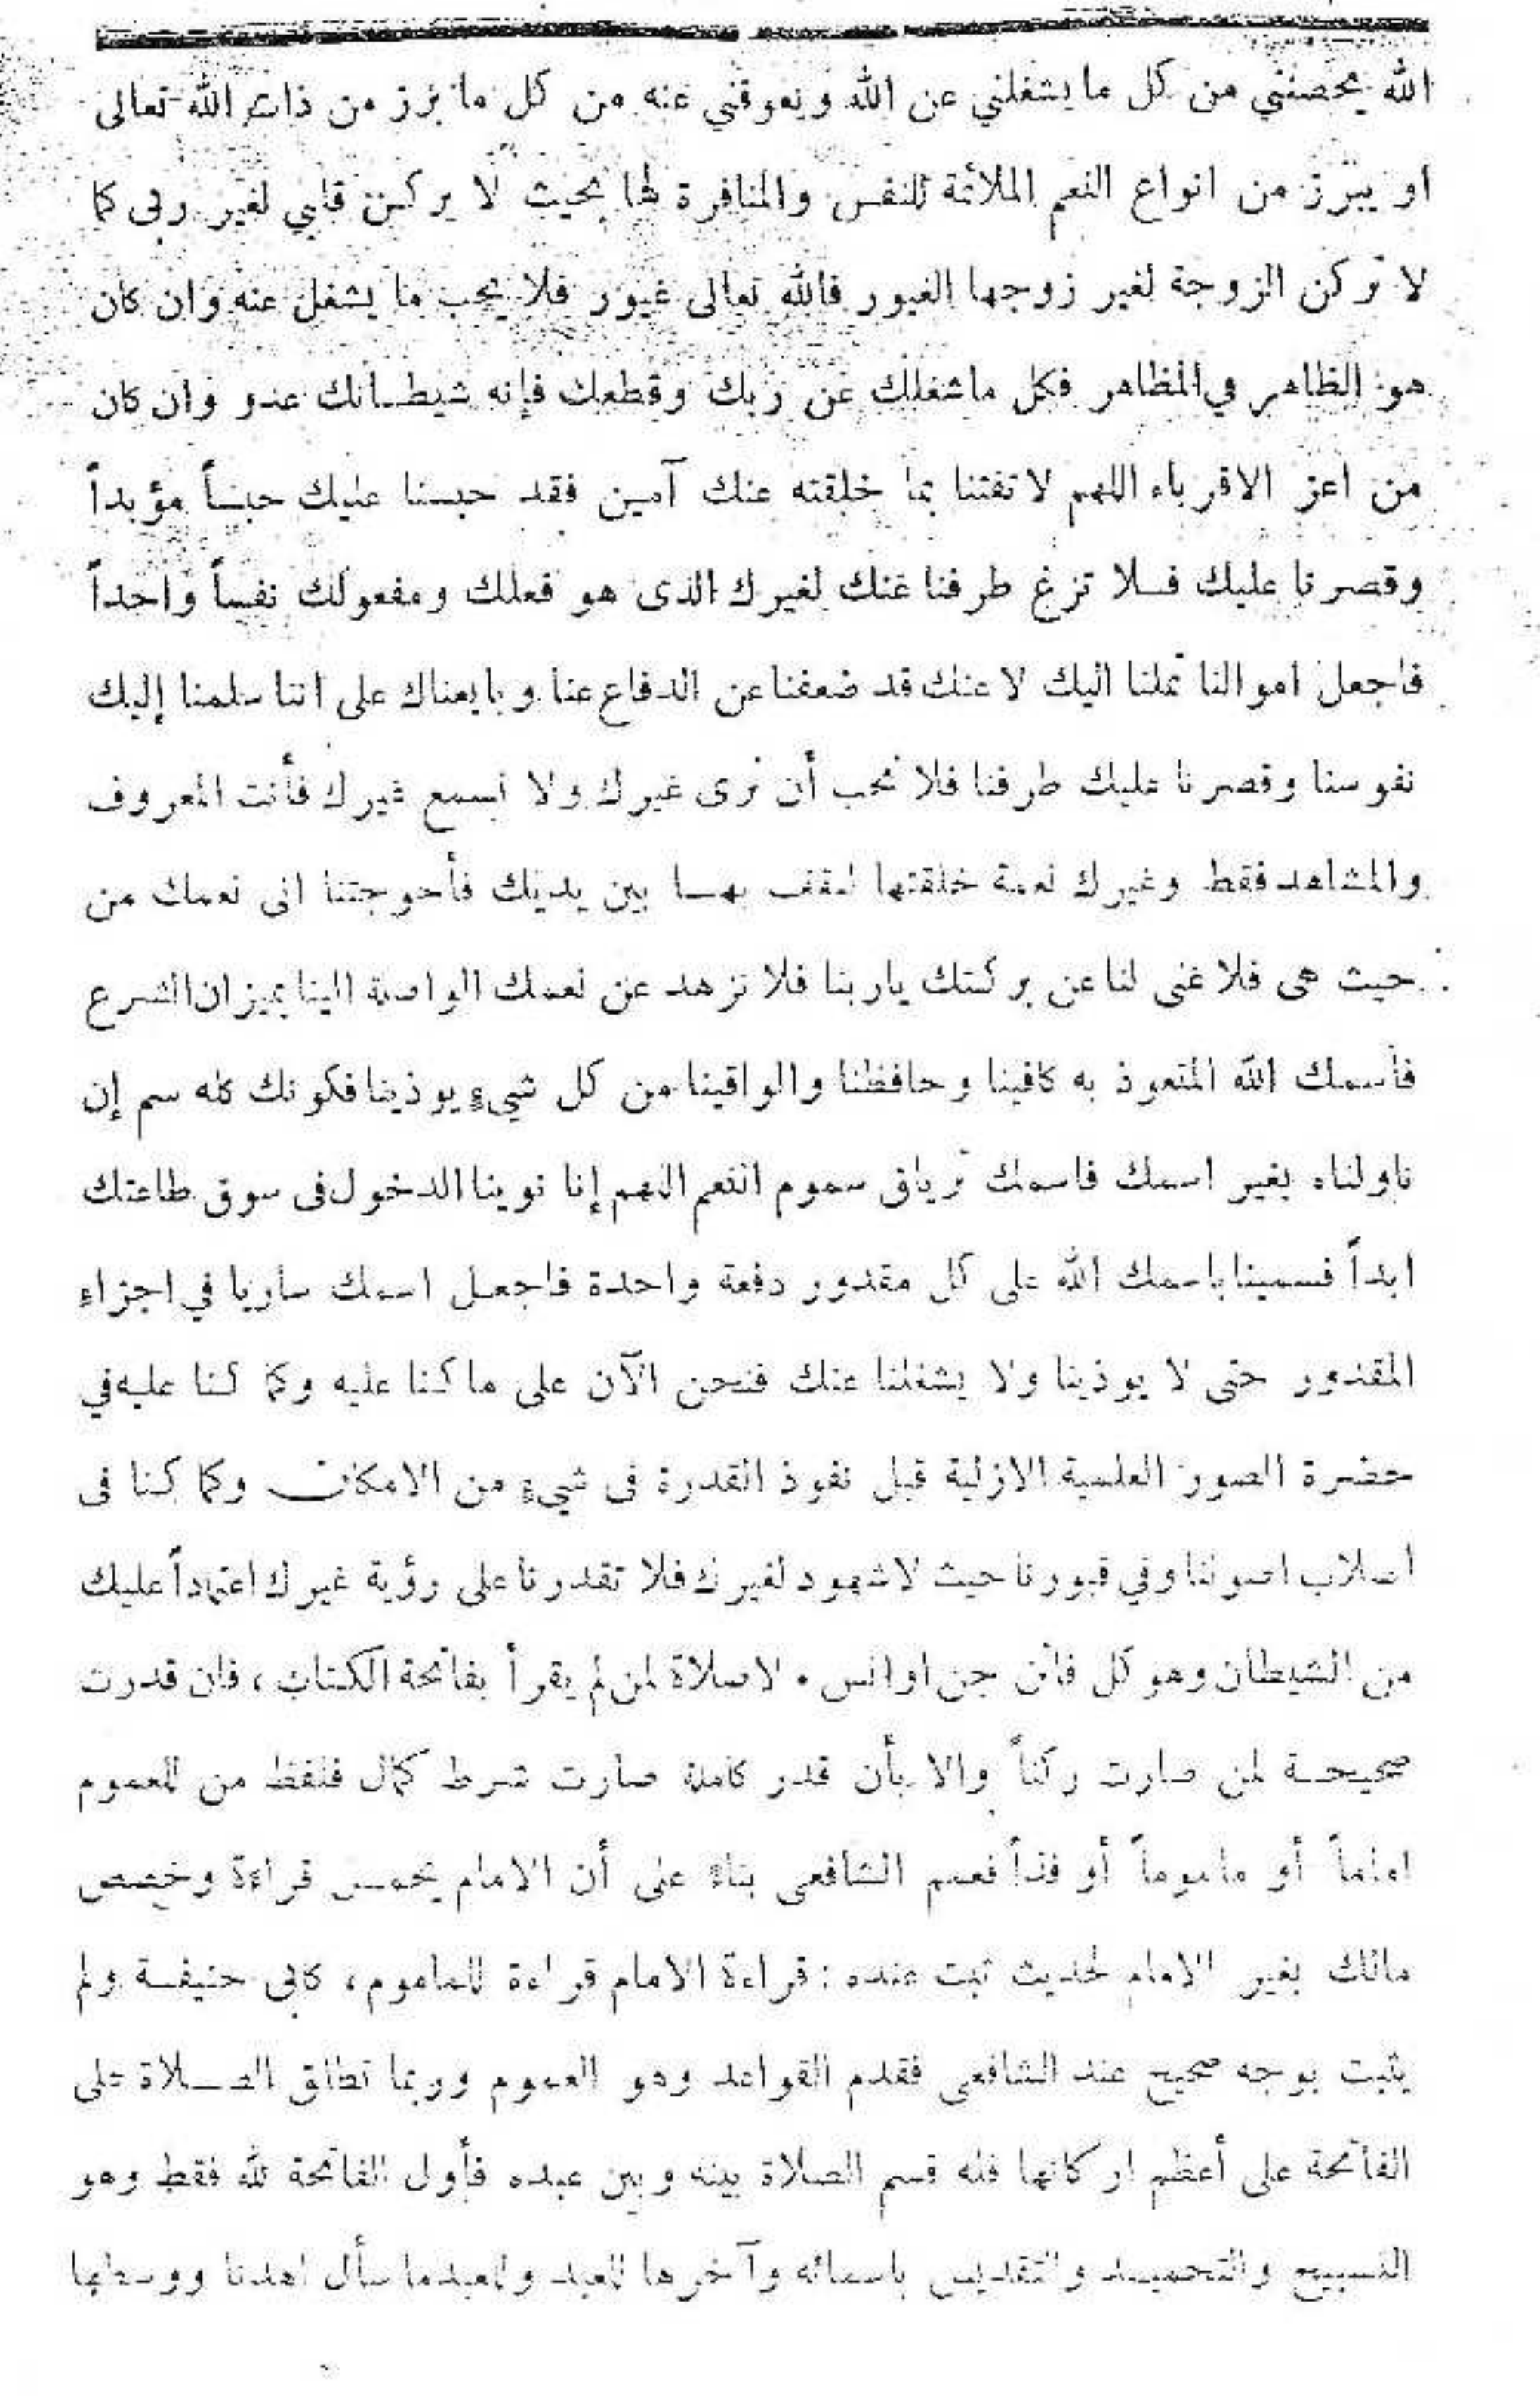 الله يحصنني من كل ما يشغلني عن الله ويعوقني عنه من كل ما برز من ذات الله تعالى
او يبرز من انواع النعم الملائمة للنفس والمنافرة لها بحيث لا يركن قلبي لغير ربى كما
لا تركن الزوجة لغير زوجها الغيور فالله تعالى غيور فلا يحب ما يشغل عنه وان كان
هو الظاهر في المظاهر فكل ماشغلك عن ربك وقطعك فإنه شيطانك عدو وان كان
من اعز الاقرباء اللهم لا تفتنا بما خلقته عنك آمين فقد حبسنا عليك حبساً مؤبداً
وقصرنا عليك فلا تزغ طرفنا عنك لغيرك الذى هو فعلك ومفعولك نفساً واحداً
فاجعل اموالنا تملنا اليك لا عنك قد ضعفنا عن الدفاع عنا وبايعناك على اننا سلمنا إليك
نفوسنا وقصرنا عليك طرفنا فلا نحب أن نرى غيرك ولا نسمع غيرك فأنت المعروف
والمشاهد فقط وغيرك نعمة خلقتها لنقف بها بين يديك فأحوجتنا الى نعمك من
حيث هى فلا غنى لنا عن بركتك ياربنا فلا نزهد عن نعمك الواصلة الينا بميزان الشرع
فأسمك الله المتعوذ به كافينا وحافظنا والواقينا من كل شيء يوذينا فكونك كله سم إن
ناولناه بغير اسمك فاسمك ترياق سموم النعم اللهم إنا نوينا الدخول فى سوق طاعتك
ابداً فسمينا باسمك الله على كل مقدور دفعة واحدة فاجعل اسمك ساريا في اجزاء
المقدور حتى لا يوذينا ولا يشغلنا عنك فنحن الآن على ما كنا عليه وكما كنا عليه في
حضرة الصور العلمية الازلية قبل نفوذ القدرة فى شيء من الامكان وكما كنا فى
أصلاب اصولنا وفي قبورنا حيث لا شهود لغيرك فلا تقدرنا على رؤية غيرك اعتماداً عليك
من الشيطان وهو كل فاتن جن او انس . لا صلاة لمن لم يقرأ بفاتحة الكتاب ، فان قدرت
صحيحة لمن صارت ركناً والا بأن قدر كاملة صارت شرط كمال فلفظ من للعموم
اماماً أو ماموماً أو فذاً فعمم الشافعى بناء على أن الامام قراءة وخصص
مالك بغير الامام لحديث ثبت عنده : قراءة الامام قراءة للماموم ، كابى حنيفة ولم
يثبت بوجه صحيح عند الشافعى فقدم القواعد وهو العموم وربما تطلق الصلاة على
الفاتحة على أعظم اركانها فلله قسم الصلاة بينه وبين عبده فأول الفاتحة لله فقط وهو
التسبيح والتحميد والتقديس باسمائه وآخرها للعبد ولعبدما سأل اهدنا ووسطها